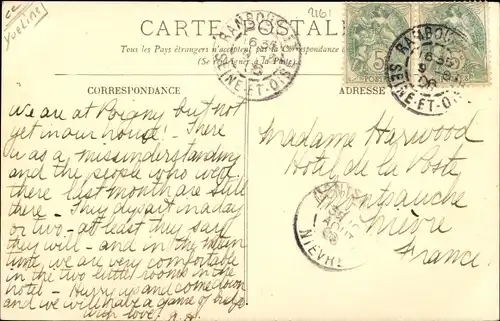 CC
Yvelines
2161
CARTE POSTALE
Tous les Pays étrangers n'acceptent pas la Correspondance
(Se à la Poste).
CORRESPONDANCE
We are at Poigny but not
yet in our house! – There
was a misunderstanding
and the people who were
there last month are still
there – They depart in a day
or two – at least they say
they will – and in the mean
time, we are very comfortable
in the two little rooms in the
hotel – Hurry up and come down
and we will have a game of
with love.
ADRESSE
Madame Harwood
Hotel de la Poste
Montsauche
Nièvre
France.
RAMBOUILLET
6 35
SEINE-ET-OISE
RAMBOUILLET
6 35
SEINE-ET-OISE
NIÈVRE